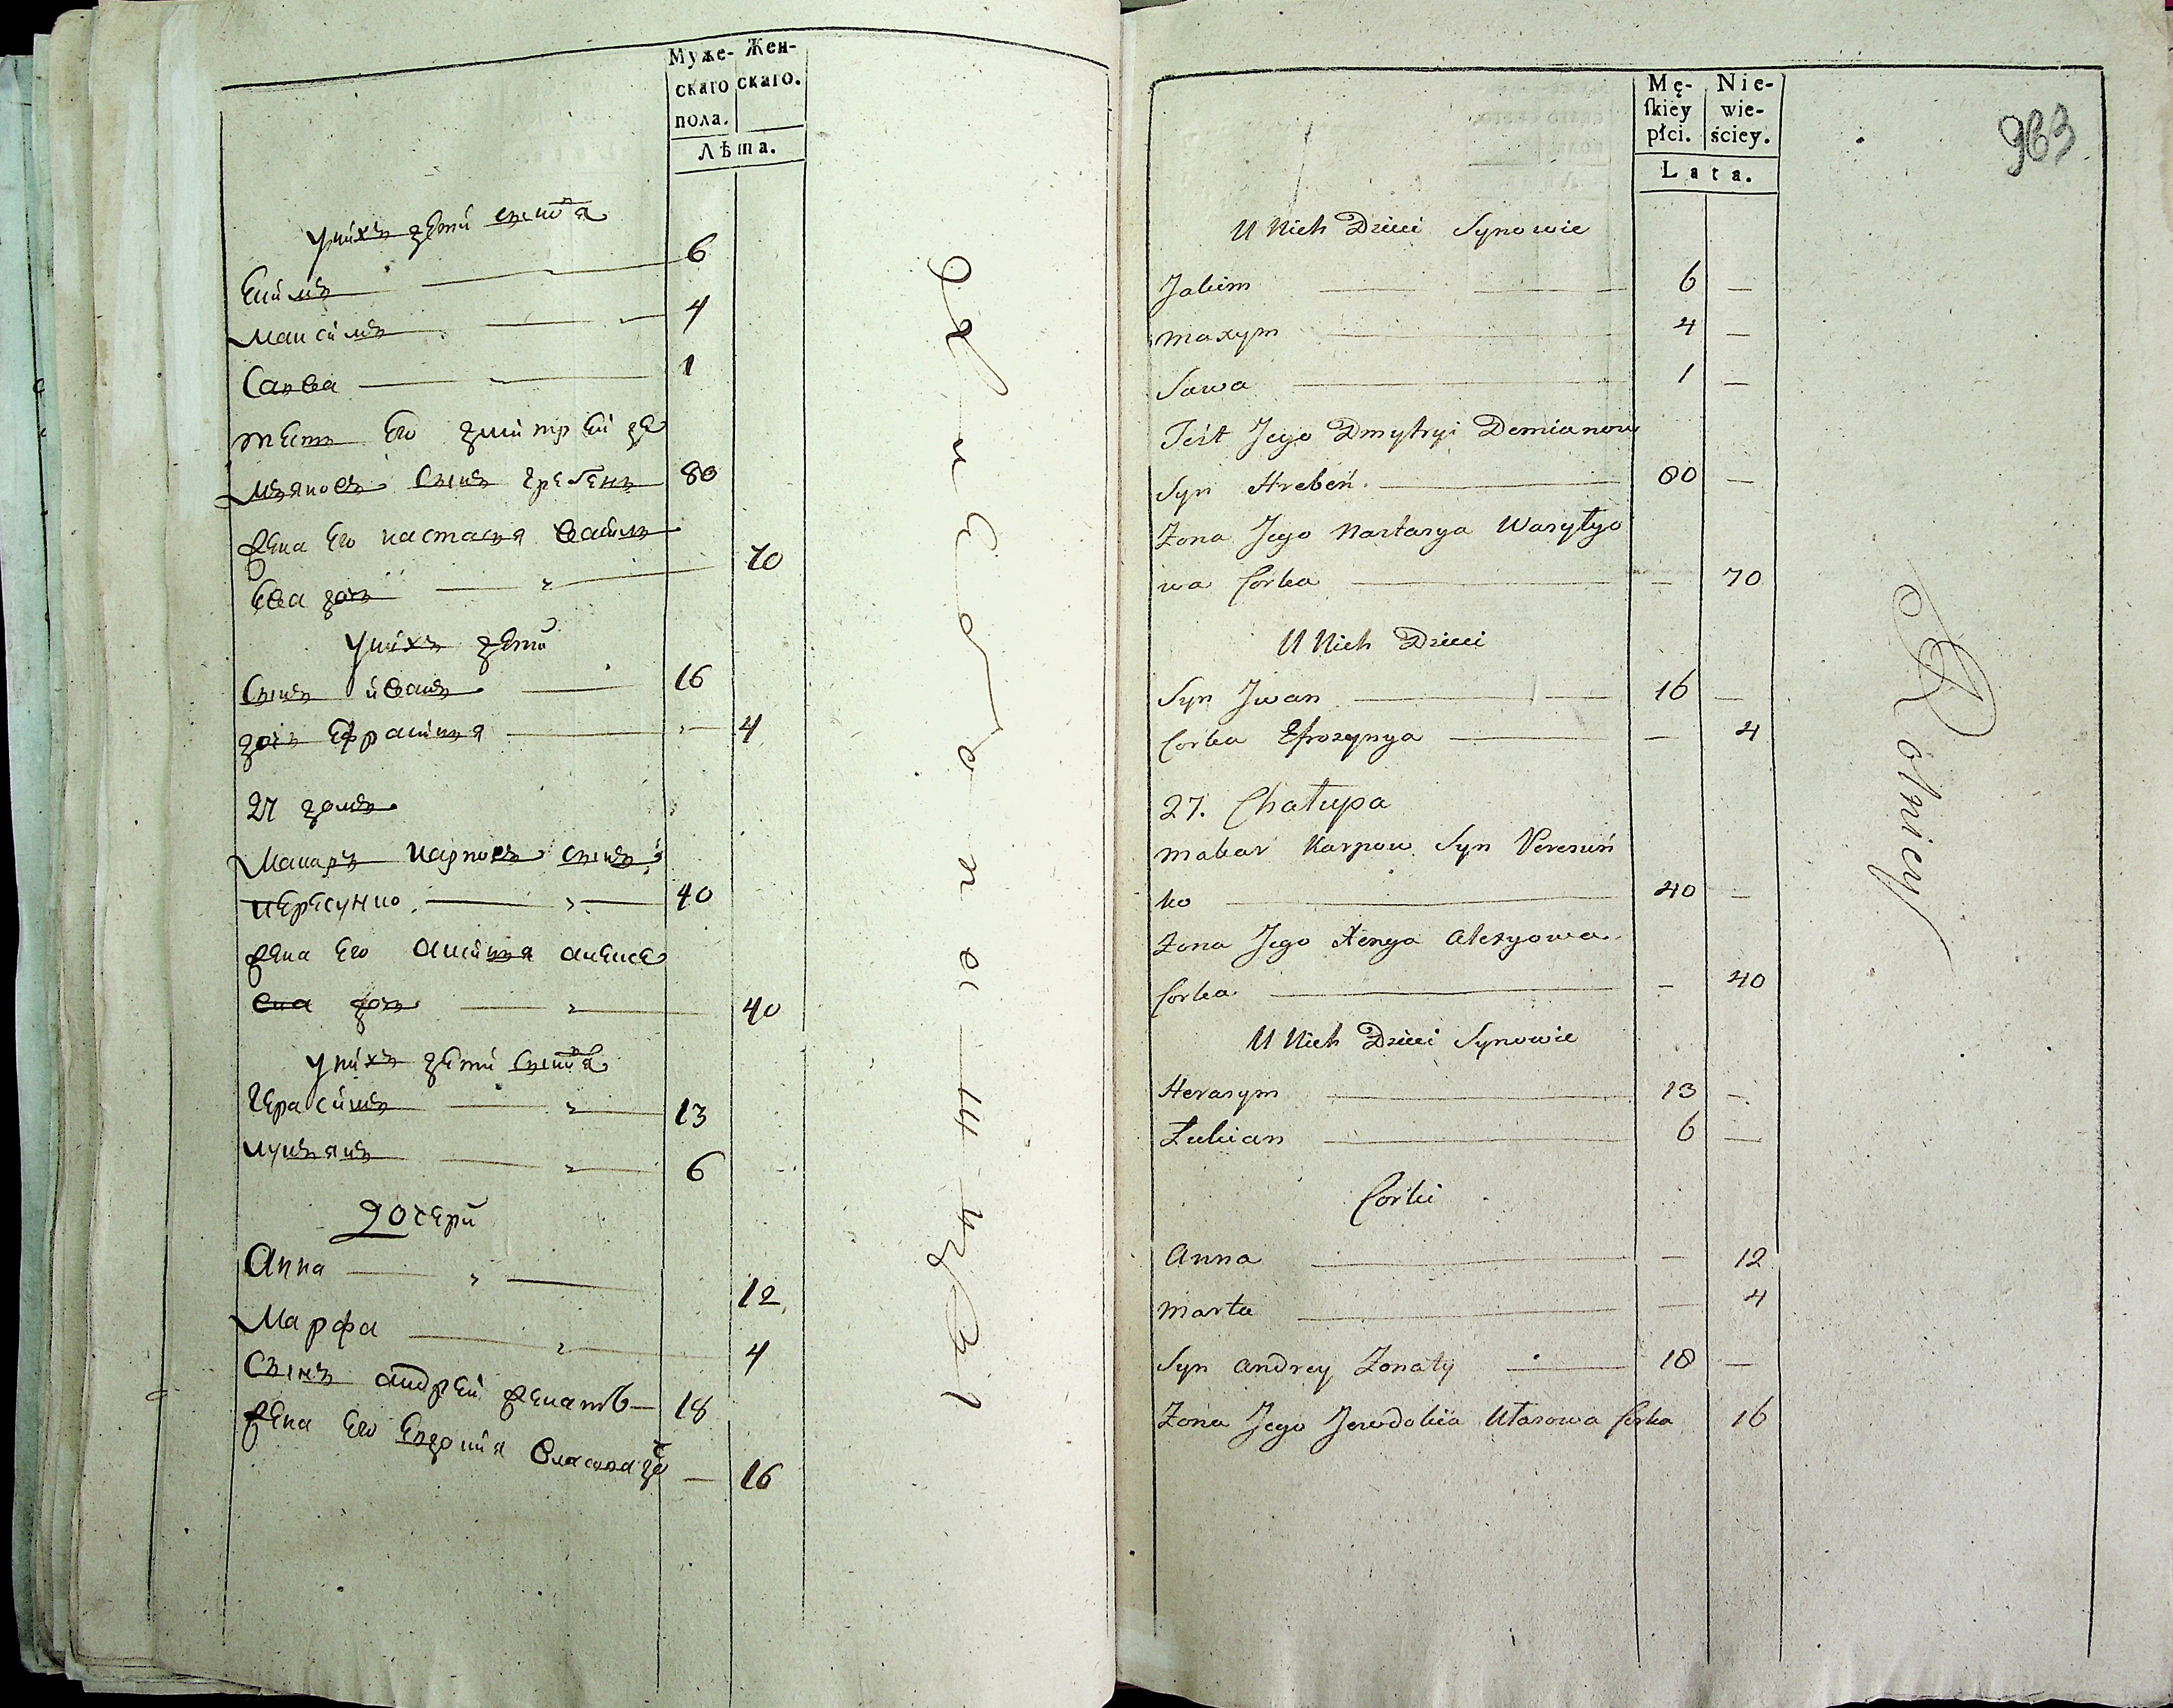 Муже- Жен-
скаго скаго.
пола.
Лѣта.
у нихъ дети сыновя
Екимъ 6
Максимъ 4
Савва 1
тесть Его дмитрей де
мьяновъ сынъ гребень 80
жена Его настасья васил
ева дочь 70
у нихъ дети
сынъ иванъ 16
дочь Ефросинья 4
27 домъ
Макаръ Карповъ сынъ
40
жена Его аксинья алексе
евна дочь 40
у нихъ дети сыновя
Герасимъ 13
лукьянъ 6
дочери
Анна 12
Марфа 4
Сынъ андрей женатъ 18
жена Его Евдокия власова до 16
Mę- Nie-
ſkiey wie-
płci. ściey.
Lata.
963
U Nich Dzieci Synowie
Jakim 6 —
Maxym 4 —
Sawa 1 —
Teśt Jego Dmytryi Demianow
Syn Hrebeń 80 —
Zona Jego Nastasya Wasyłyo
wa Corka — 70
U Nich Dzieci
Syn Jwan 16 —
Corka Efrozynya — 4
27. Chałupa
Makar Karpow Syn Veresuń
ko 40 —
Zona Jego Xenya Alexyowa
Corka — 40
U Nich Dzieci Synowie
Herasym 13 —
Łukian 6 —
Corki
Anna — 12
Marta — 4
Syn Andrey Zonaty 18 —
Zona Jego Jewdokiia Ułasowa Corka 16
Rotniey